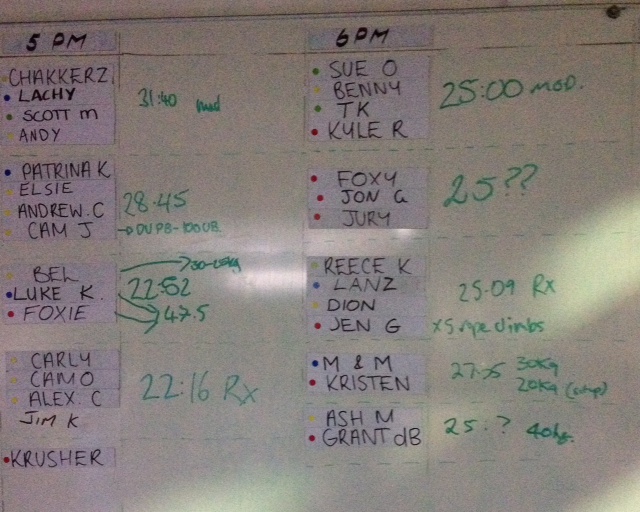 5 PM
CHAKKERZ
LACHY
SCOTT M
ANDY
31:40 mod
PATRINA K
ELSIE
ANDREW. C
CAM J
28.45
→ DU PB-100UB.
BEL
LUKE K.
FOXIE
22:52
47.5
CARLY
CAMO
ALEX. C
JIM K
22:16 Rx
KRUSHER
6 PM
SUE O
BENNY
TK
KYLE R
25:00 MOD.
FOXY
JON G
JURY
25??
REECE K
LANZ
DION
JEN G
25:09 Rx
M & M
KRISTEN
30Kg
20Kg
ASH M
GRANT dB
25.?
40kg.